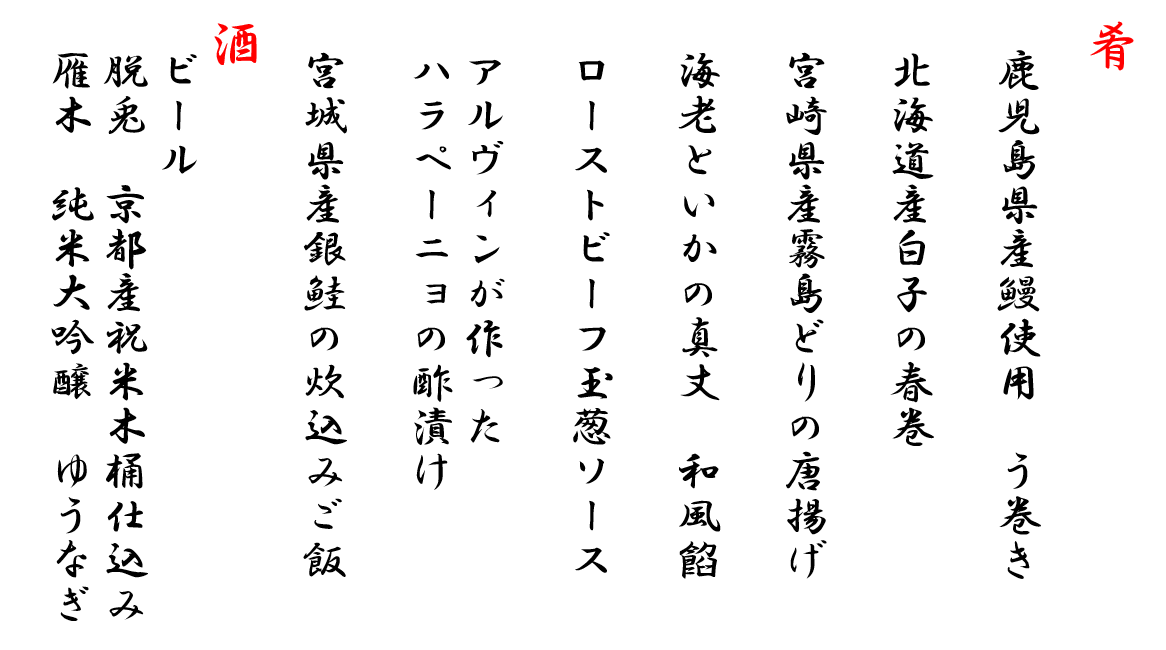 肴
鹿児島県産鰻使用　う巻き
北海道産白子の春巻
宮崎県産霧島どりの唐揚げ
海老といかの真丈　和風餡
ローストビーフ玉葱ソース
アルヴィンが作った
ハラペーニョの酢漬け
宮城県産銀鮭の炊込みご飯
酒
ビール
脱兎　京都産祝米木桶仕込み
雁木　純米大吟醸　ゆうなぎ